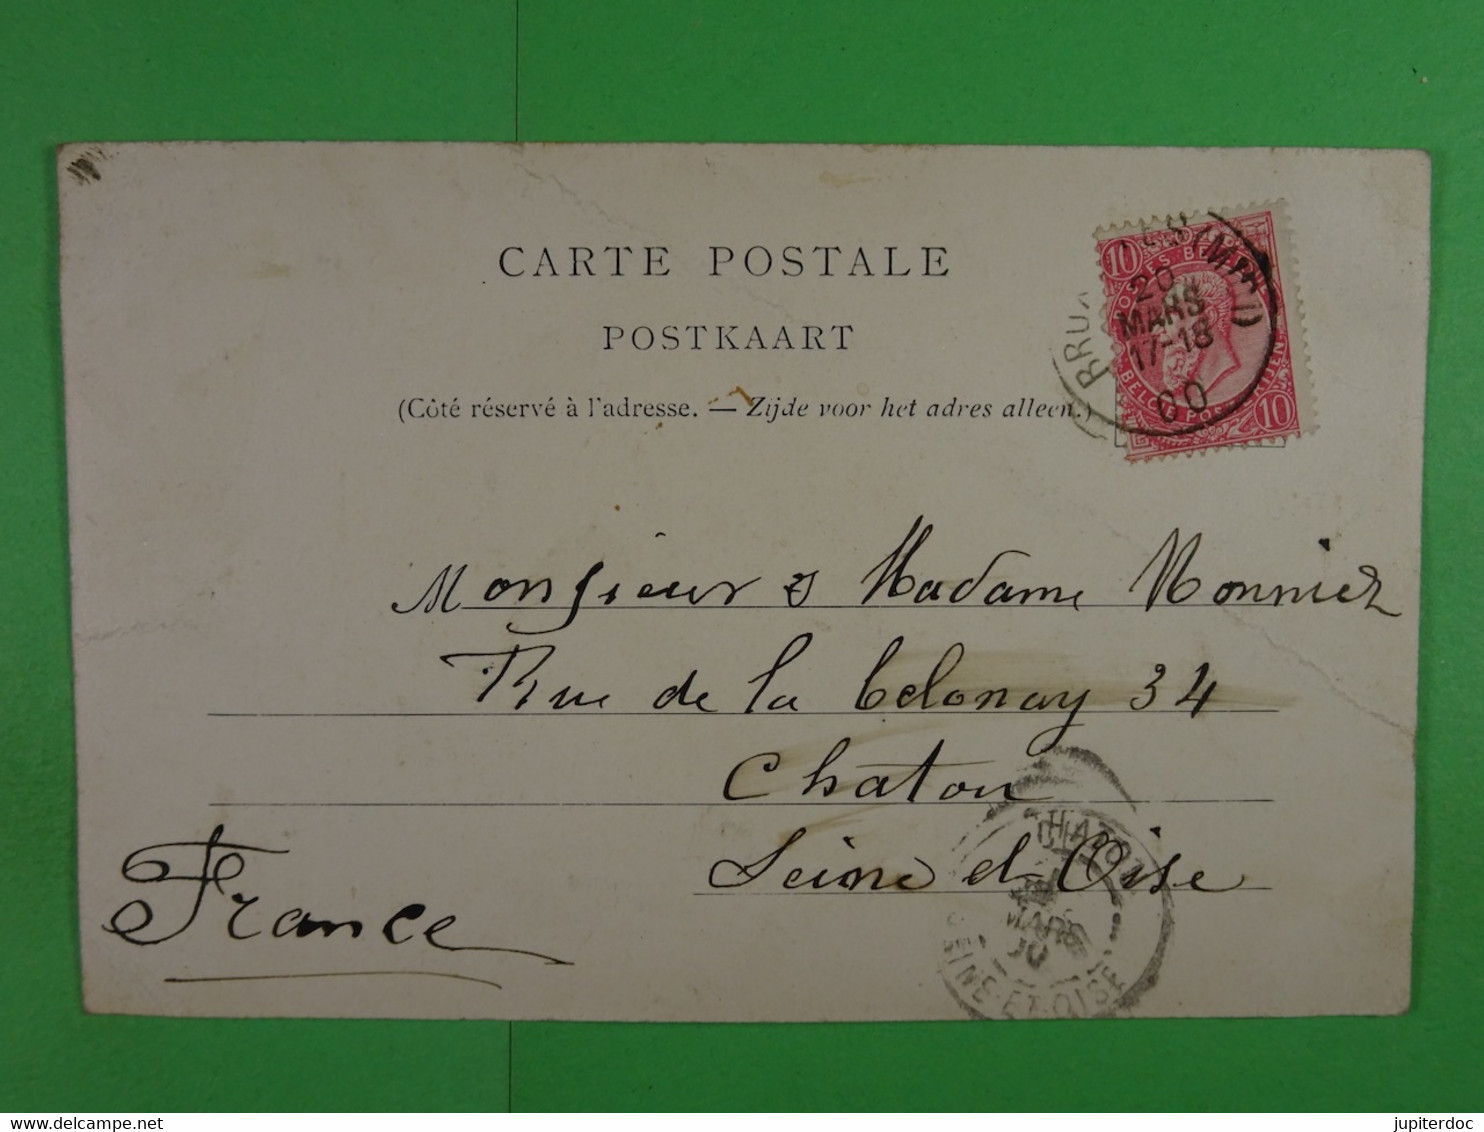 CARTE POSTALE
POSTKAART
(Côté réservé à l'adresse. — Zijde voor het adres alleen.)
10 POSTES BE
20
MARS
17-18
00
BELGIË POSTERIJEN 10
Monsieur & Madame Monnier
Rue de la Celonay 34
Chatou
Seine et Oise
France
CHATOU
MARS
00
SEINE-ET-OISE
delcampe.net
jupiterdoc